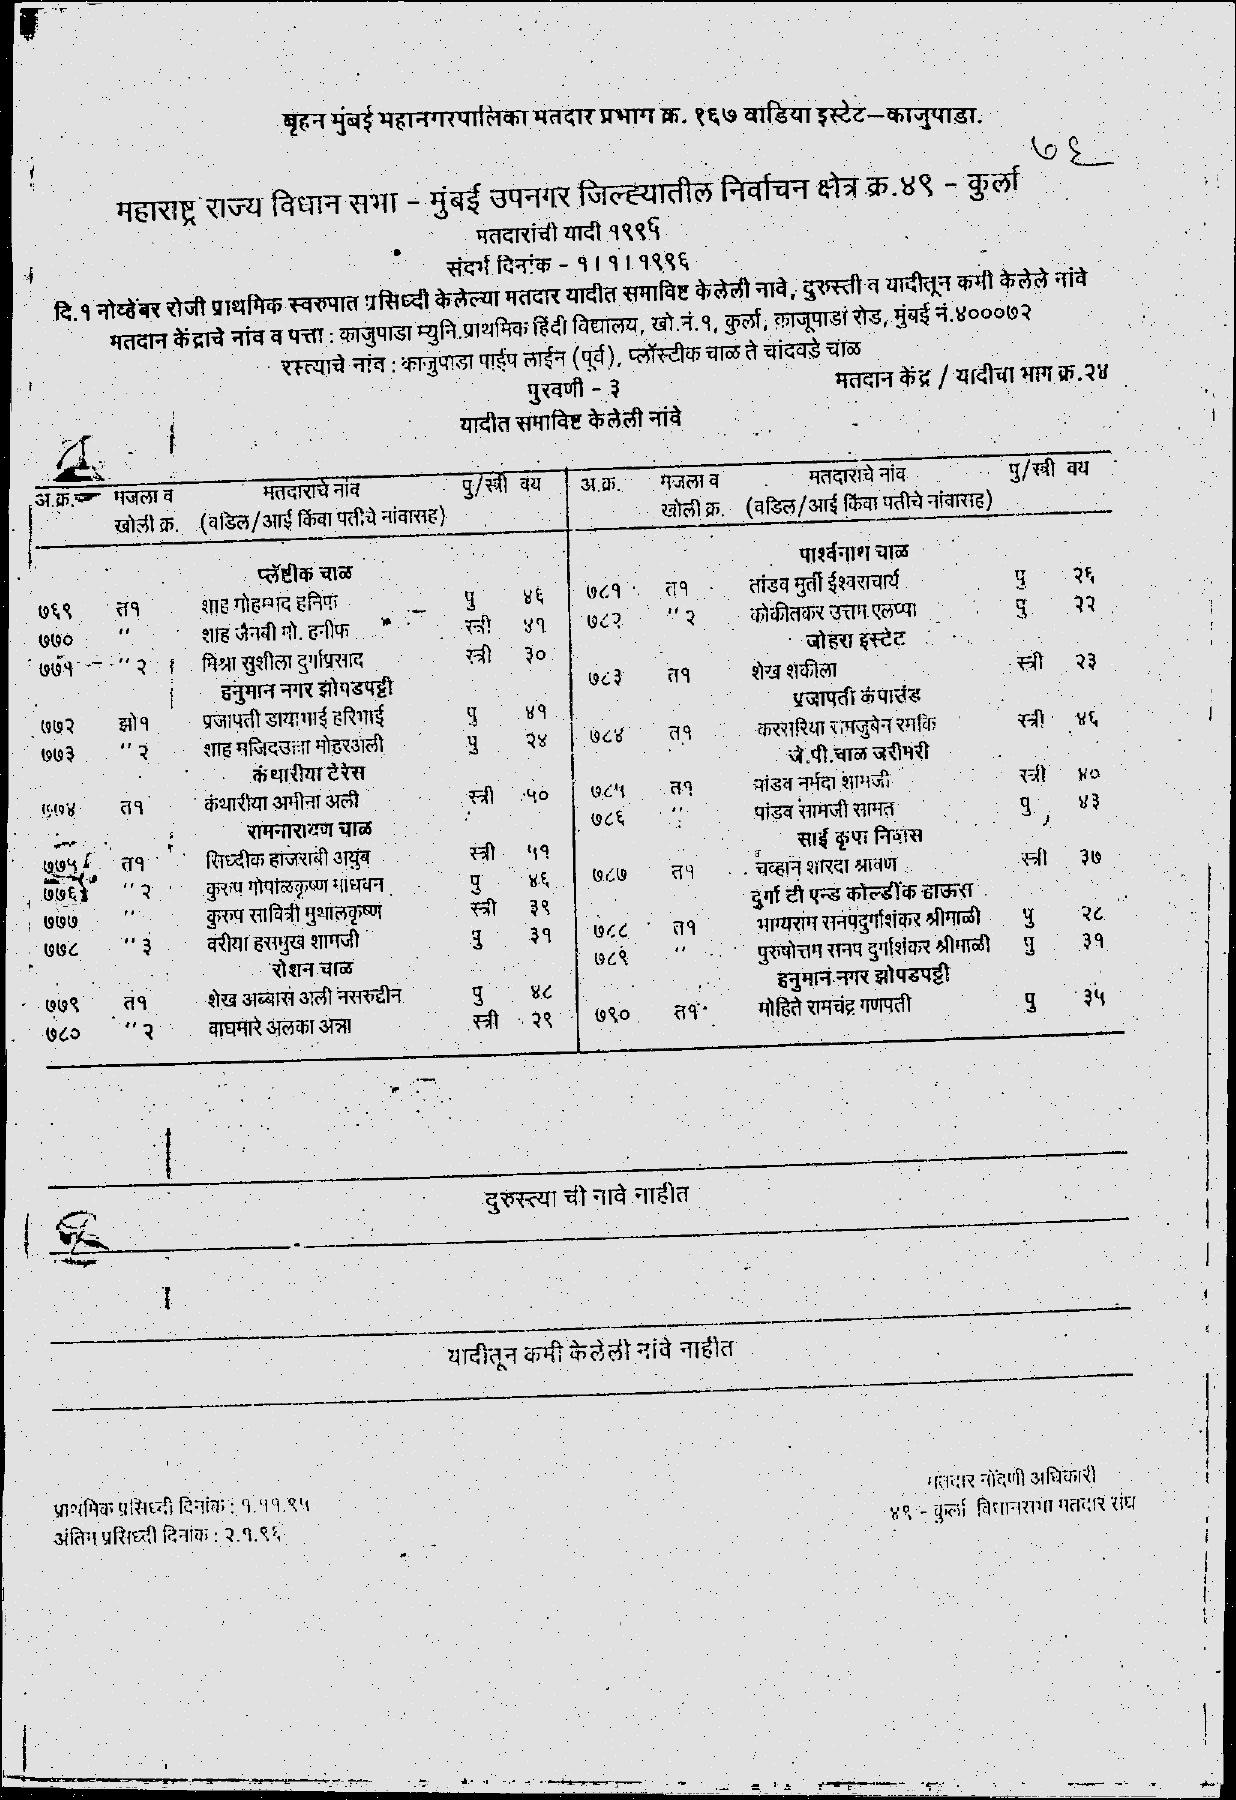 बृहन मुंबई महानगरपालिका मतदार प्रभाग क्र. १६७ वाडिया इस्टेट–काजुपाडा.
७६
महाराष्ट्र राज्य विधान सभा – मुंबई उपनगर जिल्ह्यातील निर्वाचन क्षेत्र क्र.४९ – कुर्ला
मतदारांची यादी १९९६
संदर्भ दिनांक – १।१।१९९६
दि.१ नोव्हेंबर रोजी प्राथमिक स्वरुपात प्रसिध्दी केलेल्या मतदार यादीत समाविष्ट केलेली नावे, दुरुस्ती व यादीतून कमी केलेले नांवे
मतदान केंद्राचे नांव व पत्ता : काजुपाडा म्युनि.प्राथमिक हिंदी विद्यालय, खो.नं.१, कुर्ला, काजूपाडा रोड, मुंबई नं.४०००७२
रस्त्याचे नांव : काजुपाडा पाईप लाईन (पूर्व), प्लॉस्टीक चाळ ते चांदवडे चाळ
पुरवणी – ३
मतदान केंद्र / यादीचा भाग क्र.२४
यादीत समाविष्ट केलेली नांवे
अ.क्र. मजला व मतदाराचे नांव पु/स्त्री वय
खोली क्र. (वडिल/आई किंवा पतीचे नांवासह)
प्लॅष्टीक चाळ
७६९ त१ शाह मोहम्मद हनिफ पु ४६
७७० " शाह जैनबी मो. हनीफ स्त्री ४१
७७१ " २ मिश्रा सुशीला दुर्गाप्रसाद स्त्री ३०
हनुमान नगर झोपडपट्टी
७७२ झो१ प्रजापती डायाभाई हरिभाई पु ४१
७७३ " २ शाह मजिदउल्ला मोहरअली पु २४
कंथारीया टेरेस
७७४ त१ कंथारीया अमीना अली स्त्री ५०
रामनारायण चाळ
७७५ त१ सिध्दीक हाजराबी अयुब स्त्री ५१
७७६ " २ कुरुप गोपाळकृष्ण माधवन पु ४६
७७७ " कुरुप सावित्री मुथालकृष्ण स्त्री ३९
७७८ " ३ वरीया हसमुख शामजी पु ३१
रोशन चाळ
७७९ त१ शेख अब्बास अली नसरुद्दीन पु ४८
७८० " २ वाघमारे अलका अन्ना स्त्री २९
अ.क्र. मजला व मतदाराचे नांव पु/स्त्री वय
खोली क्र. (वडिल/आई किंवा पतीचे नांवासह)
पार्श्वनाथ चाळ
७८१ त१ तांडव मुर्ती ईश्वराचार्य पु २६
७८२ " २ कोकीतकर उत्तम एलप्पा पु २२
जोहरा इस्टेट
७८३ त१ शेख शकीला स्त्री २३
प्रजापती कंपाउंड
७८४ त१ करसरिया स्त्री ४६
जे.पी.चाळ जरीमरी
७८५ त१ पांडव नर्मदा शामजी स्त्री ४०
७८६ " पांडव सामजी सामत पु ४३
साई कृपा निवास
७८७ त१ चव्हान शारदा श्रावण स्त्री ३७
दुर्गा टी एन्ड कोल्डींक हाऊस
७८८ त१ भाग्यराम सनपदुर्गाशंकर श्रीमाळी पु २८
७८९ " पुरुषोत्तम सनप दुर्गाशंकर श्रीमाळी पु ३१
हनुमान नगर झोपडपट्टी
७९० त१ मोहिते रामचंद्र गणपती पु ३५
दुरुस्त्या ची नावे नाहीत
यादीतून कमी केलेली नांवे नाहीत
मतदार नोंदणी अधिकारी
प्राथमिक प्रसिध्दी दिनांक : १.११.९५
४९ – कुर्ला विधानसभा मतदार संघ
अंतिम प्रसिध्दी दिनांक : २.१.९६